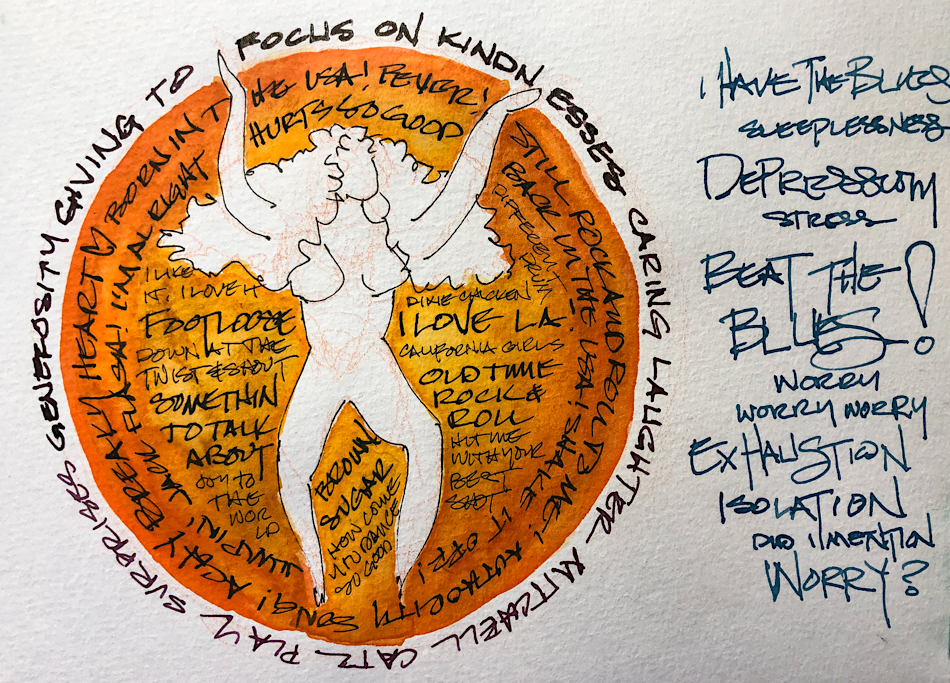 FOCUS ON KINDNESSES CARING LAUGHTER MITCHELL CATZ PLAY SURPRISES GENEROSITY GIVING TO
BORN IN THE USA! FEVER!
HURTS SO GOOD
STILL ROCK AND ROLL TO ME! AUTHORITY SONG! ACHY BREAKY HEART
BACK IN THE USA! SHAKE IT OFF!
DIFFERENT DRUM
JUMPIN' JACK FLASH! I'M ALRIGHT
I LIKE
IT. I LOVE IT
FOOTLOOSE
DOWN AT THE
TWIST & SHOUT
SOMETHIN
TO TALK
ABOUT
JOY TO
THE
WOR
LD
DIXIE CHICKEN
I LOVE LA
CALIFORNIA GIRLS
OLD TIME
ROCK &
ROLL
HIT ME
WITH YOUR
BEST
SHOT
BROWN
SUGAR
HOW COME
U DANCE
SO GOOD
I HAVE THE BLUES
SLEEPLESSNESS
DEPRESSION
STRESS
BEAT THE
BLUES!
WORRY
WORRY WORRY
EXHAUSTION
ISOLATION
DID I MENTION
WORRY?